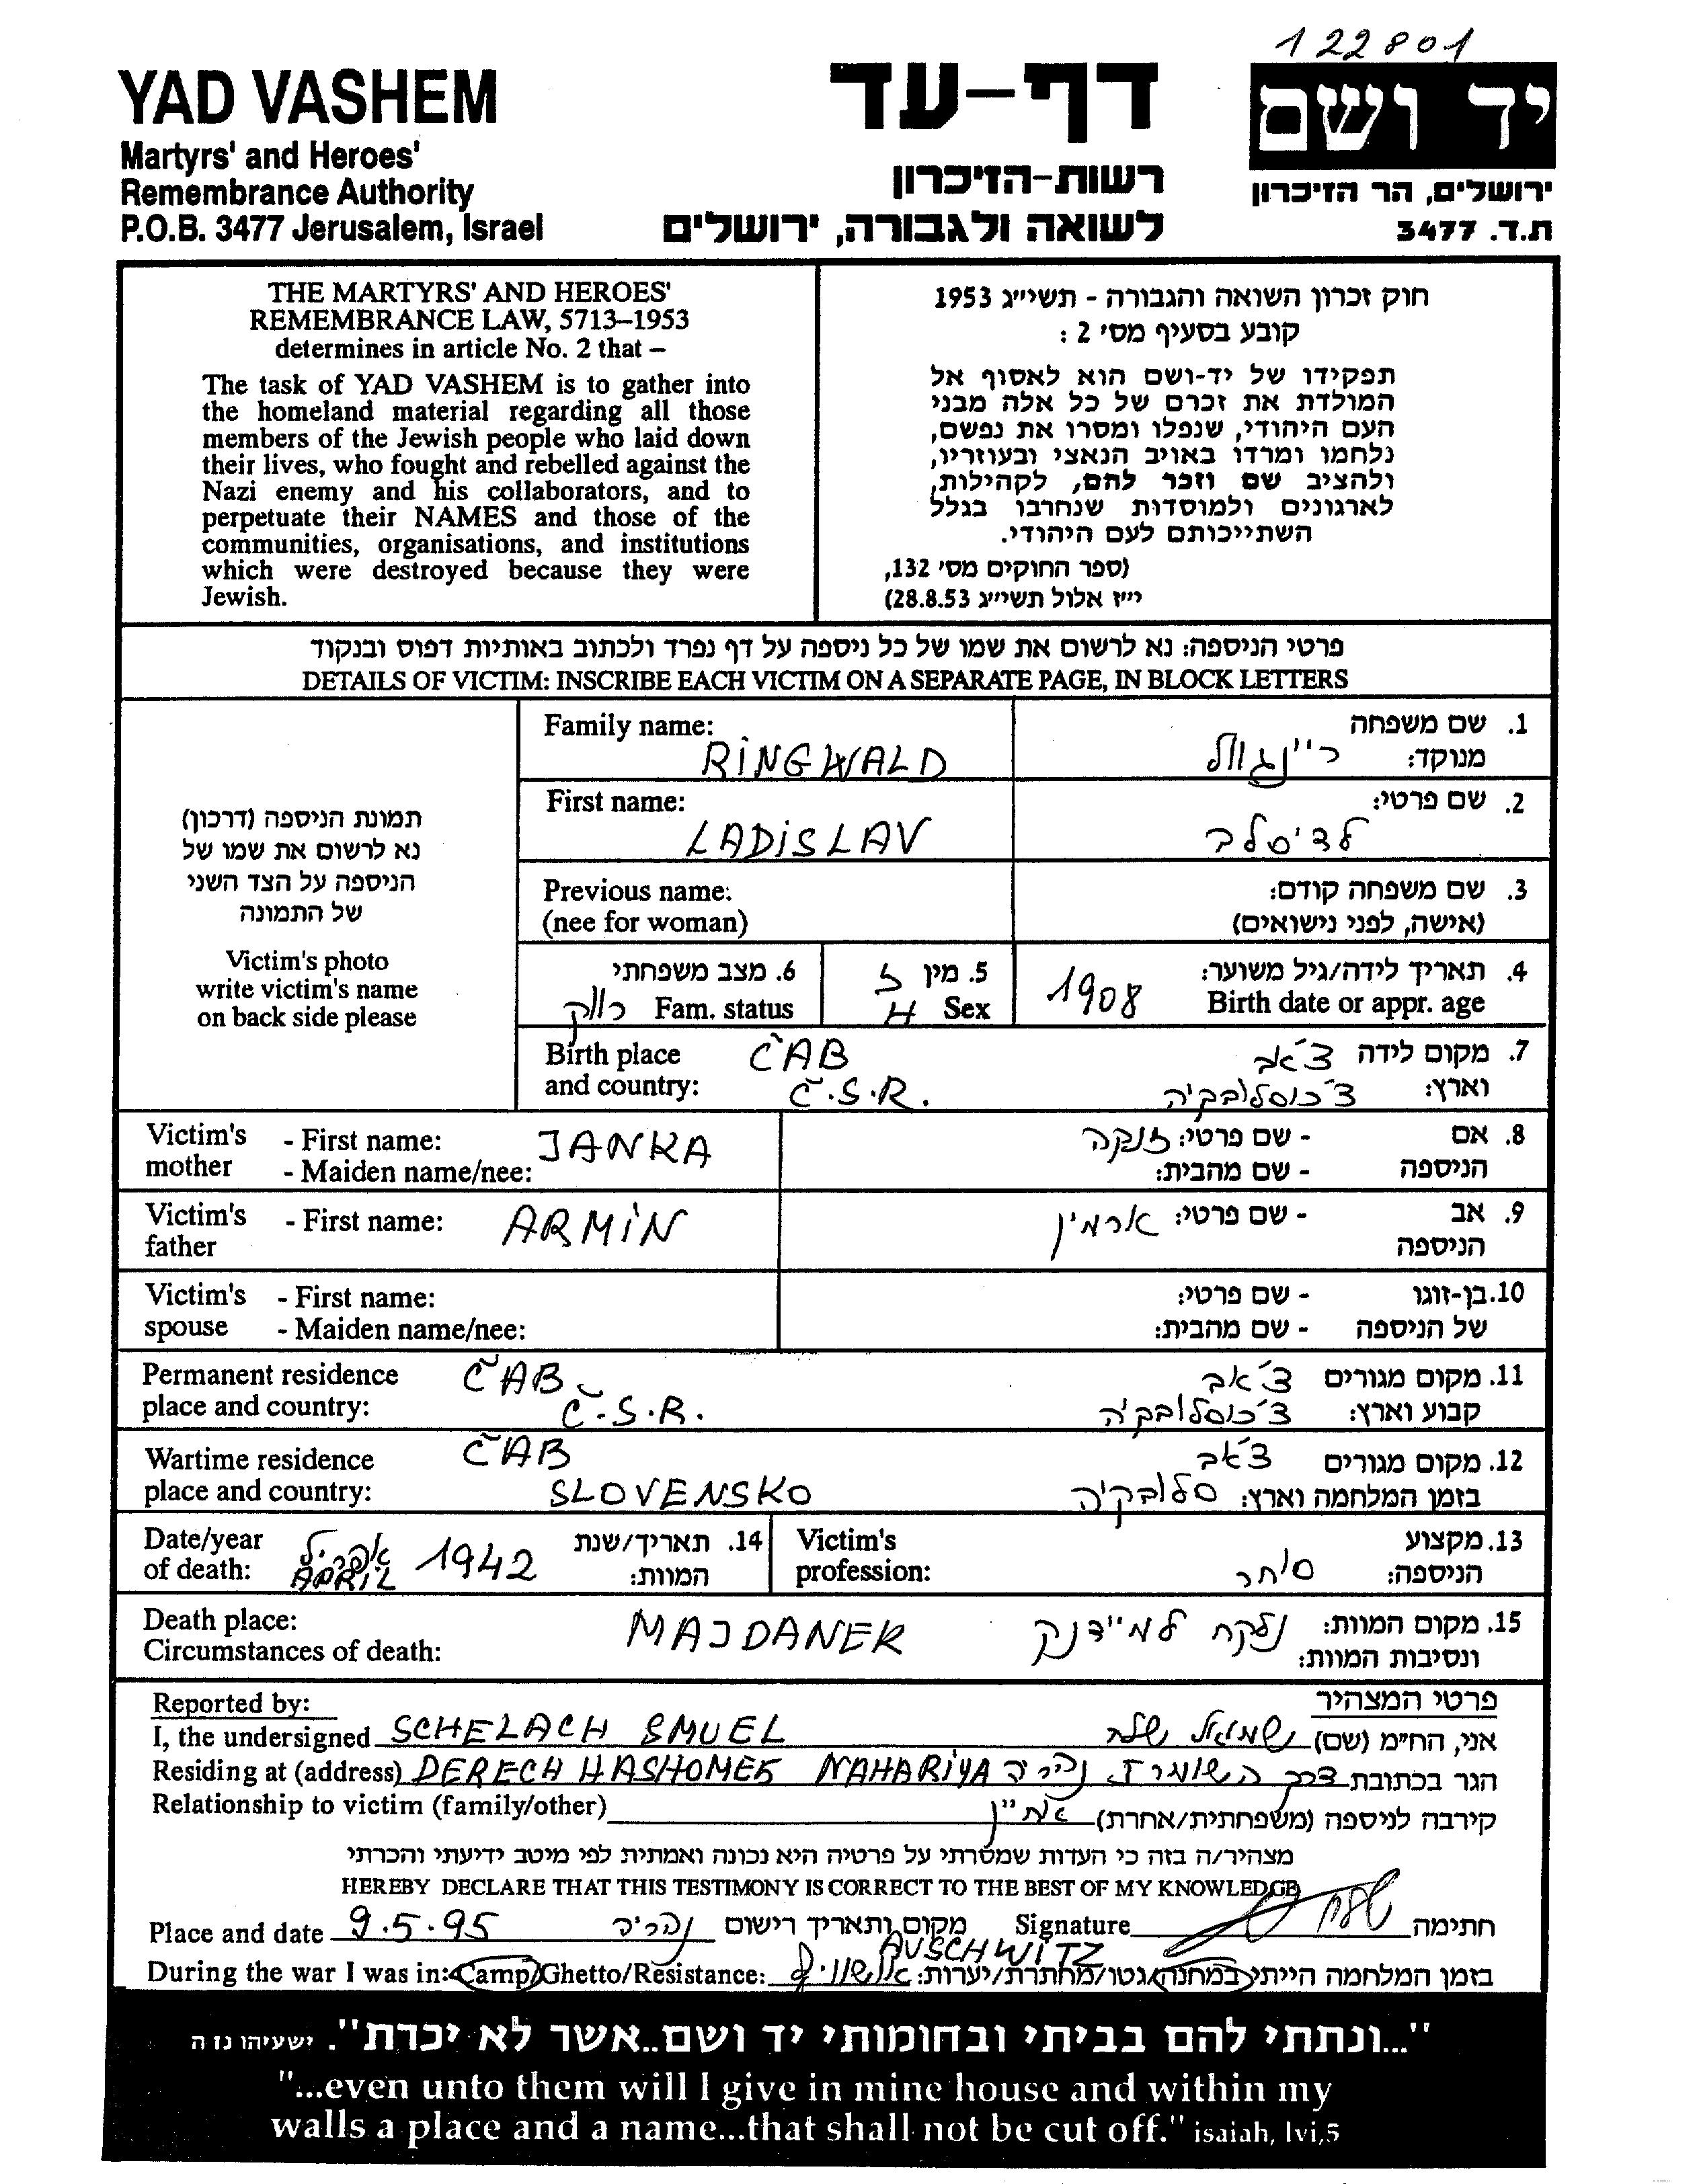 122801
YAD VASHEM
Martyrs' and Heroes'
Remembrance Authority
P.O.B. 3477 Jerusalem, Israel
דף-עד
רשות-הזיכרון
לשואה ולגבורה, ירושלים
יד ושם
ירושלים, הר הזיכרון
ת.ד. 3477
THE MARTYRS' AND HEROES'
REMEMBRANCE LAW, 5713–1953
determines in article No. 2 that –
The task of YAD VASHEM is to gather into
the homeland material regarding all those
members of the Jewish people who laid down
their lives, who fought and rebelled against the
Nazi enemy and his collaborators, and to
perpetuate their NAMES and those of the
communities, organisations, and institutions
which were destroyed because they were
Jewish.
חוק זכרון השואה והגבורה - תשי״ג 1953
קובע בסעיף מס׳ 2 :
תפקידו של יד-ושם הוא לאסוף אל
המולדת את זכרם של כל אלה מבני
העם היהודי, שנפלו ומסרו את נפשם,
נלחמו ומרדו באויב הנאצי ובעוזריו,
ולהציב שם וזכר להם, לקהילות,
לארגונים ולמוסדות שנחרבו בגלל
השתייכותם לעם היהודי.
(ספר החוקים מס׳ 132,
י״ז אלול תשי״ג 28.8.53)
פרטי הניספה: נא לרשום את שמו של כל ניספה על דף נפרד ולכתוב באותיות דפוס ובנקוד
DETAILS OF VICTIM: INSCRIBE EACH VICTIM ON A SEPARATE PAGE, IN BLOCK LETTERS
תמונת הניספה (דרכון)
נא לרשום את שמו של
הניספה על הצד השני
של התמונה
Victim's photo
write victim's name
on back side please
Family name: 1. שם משפחה
RINGWALD רינגוולד מנוקד:
First name: 2. שם פרטי:
LADISLAV לדיסלב
Previous name: 3. שם משפחה קודם:
(nee for woman) (אישה, לפני נישואים)
6. מצב משפחתי 5. מין ז 4. תאריך לידה/גיל משוער:
רווק Fam. status Sex 1908 Birth date or appr. age
Birth place ČAB 7. מקום לידה צ'אב
and country: Č.S.R. וארץ: צ'כוסלובקיה
Victim's - First name: JANKA 8. אם - שם פרטי: ז'נקה
mother - Maiden name/nee: הניספה - שם מהבית:
Victim's - First name: ARMIN 9. אב - שם פרטי: ארמין
father הניספה
Victim's - First name: 10. בן-זוגו - שם פרטי:
spouse - Maiden name/nee: של הניספה - שם מהבית:
Permanent residence ČAB 11. מקום מגורים צ'אב
place and country: Č.S.R. קבוע וארץ: צ'כוסלובקיה
Wartime residence ČAB 12. מקום מגורים צ'אב
place and country: SLOVENSKO בזמן המלחמה וארץ: סלובקיה
Date/year אפריל 1942 14. תאריך/שנת Victim's 13. מקצוע
of death: APRIL המוות: profession: הניספה: סוחר
Death place: MAJDANEK 15. מקום המוות: נלקח למיידנק
Circumstances of death: ונסיבות המוות:
Reported by: פרטי המצהיר
I, the undersigned SCHELACH SMUEL אני, הח״מ (שם) שמואל שלח
Residing at (address) DERECH HASHOMER NAHARIYA הגר בכתובת דרך השומר נהריה
Relationship to victim (family/other) קירבה לניספה (משפחתית/אחרת) אחיין
מצהיר/ה בזה כי העדות שמסרתי על פרטיה היא נכונה ואמתית לפי מיטב ידיעתי והכרתי
HEREBY DECLARE THAT THIS TESTIMONY IS CORRECT TO THE BEST OF MY KNOWLEDGE
Place and date 9.5.95 נהריה מקום ותאריך רישום Signature שלח חתימה
AUSCHWITZ
During the war I was in: Camp/Ghetto/Resistance: בזמן המלחמה הייתי במחנה/גטו/מחתרת/יערות: אושוויץ
"...ונתתי להם בביתי ובחומותי יד ושם..אשר לא יכרת". ישעיהו נו ה
"...even unto them will I give in mine house and within my
walls a place and a name...that shall not be cut off." isaiah, lvi,5